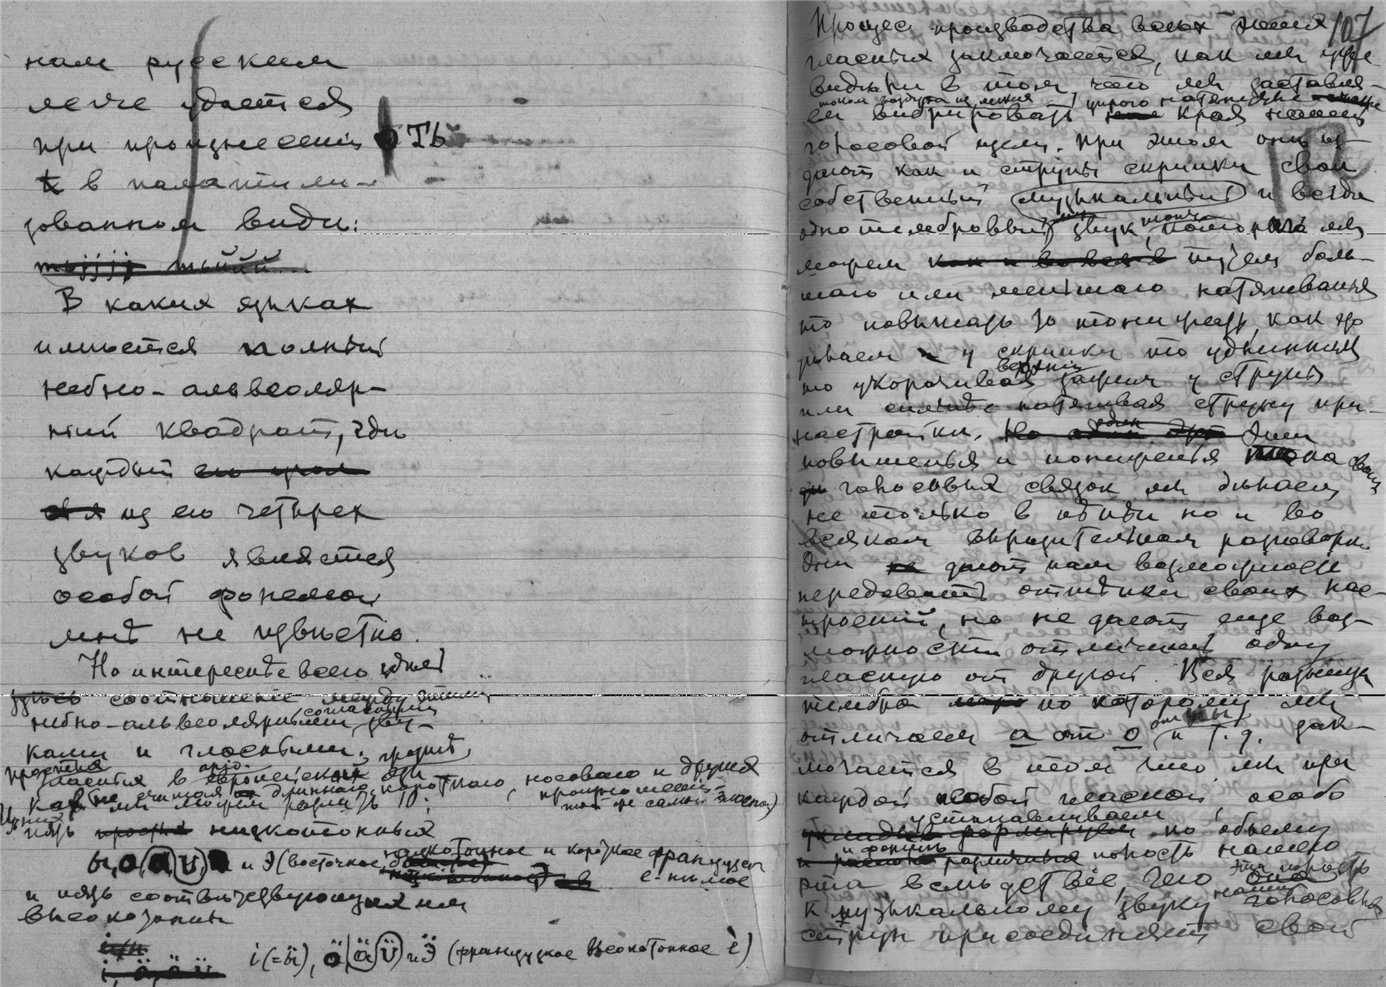 нам русским
легче удается
при произнесеніи ТЬ
в палатали-
зованном виде:
тьjjjj тьййй
В каких языках
имѣется полный
небно-альвеоляр-
ный квадрат, гдѣ
каждый
из его четырех
звуков является
особой фонемой
мнѣ не извѣстно.
Но интереснѣе всего
здѣсь соотношеніе между этими
небно-альвеолярными согласными зву-
ками и гласными.
гласныя в европейских
короткаго, носового и других
мы можем различать 10:
пять низкотонных
ы, о, а, и Э (восточное низкотонное и короткое французск.
е-нѣмое
и пять соотвѣтствующих им
высокотонных
і (=ӹ), ӧ ӓ ӱ и Ӭ (французское высокотонное è)
107
Процес производства всѣх
гласных заключается, как мы уже
видѣли в том, что мы заставля-
ем вибрировать края нашей
голосовой щели. При этом они из-
дают как и струны скрипки свой
собственный музыкальный и всегда
однотембровый звук, тон котораго мы
можем путем боль-
шаго или меньшаго натягиванья
то повышать то понижать, как то
дѣлаем у скрипки то удлинняя
то укорачивая у струны
или сильнѣе натягивая струну при
настройкѣ. Эти
повышенья и пониженья тона своих
голосовых связок мы дѣлаем
не только в пѣніи но и во
всяком выразительном разговорѣ.
Они дают нам возможность
передавать оттѣнки своих нас-
троеній, но не дают еще воз-
можности отличать одну
гласную от другой. Вся разница
тембра по которому мы
отличаем а от о и т. д. зак-
лючается в том что мы при
каждой гласной, особо
устанавливаем
по объему
и формѣ полость нашего
рта вслѣдствіе чего эта полость
к музыкальному звуку наших голосовых
струн присоединяет свой